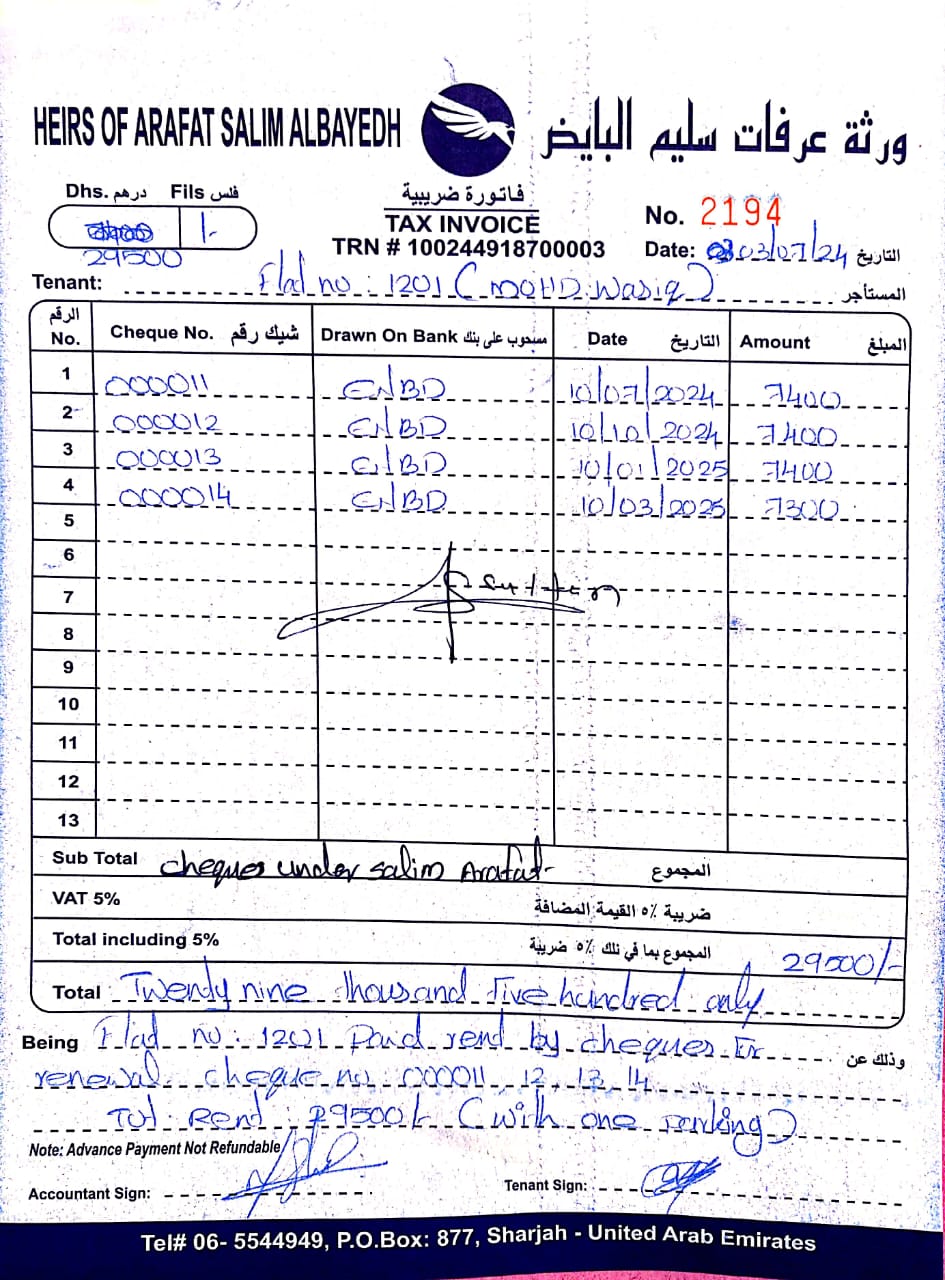 HEIRS OF ARAFAT SALIM ALBAYEDH ورثة عرفات سليم البايض
Dhs. درهم Fils فلس
فاتورة ضريبية
TAX INVOICE
No. 2194
/-
29500
TRN # 100244918700003
Date: 03/07/24 التاريخ
Tenant: Flad no : 1201 (MOHD.Wasiq) المستأجر
الرقم No. Cheque No. شيك رقم Drawn On Bank مسحوب على بنك Date التاريخ Amount المبلغ
1 000011 ENBD 10/07/2024 7400
2 000012 ENBD 10/10/2024 7400
3 000013 ENBD 10/01/2025 7400
4 000014 ENBD 10/03/2025 7300
5
6
7
8
9
10
11
12
13
Sub Total cheques under salim Arafat- المجموع
VAT 5% ضريبة ٥٪ القيمة المضافة
Total including 5% المجموع بما في ذلك ٥٪ ضريبة 29500/-
Total Twendy nine thousand five hundred only
Being Flad no : 1201 Paid rend by cheques. وذلك عن
renewal cheque no 000011 12, 13, 14
Tot : Rend : 29500/- (with one parking)
Note: Advance Payment Not Refundable
Accountant Sign: Tenant Sign:
Tel# 06- 5544949, P.O.Box: 877, Sharjah - United Arab Emirates